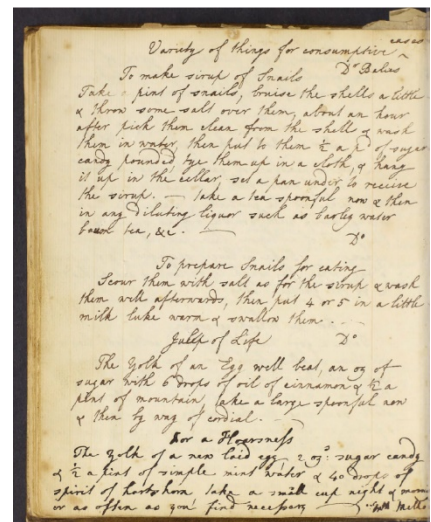 Variety of things for consumptive cases
To make sirup of Snails Dr Bakers
Take a pint of snails, bruise the shells a little
& throw some salt over them, about an hour
after pick them clean from the shell & wash
them in water, then put to them ½ a pd of sugar
candy pounded tye them up in a cloth, & hang
it up in the cellar, set a pan under to receive
the sirup. — take a tea spoonful now & then
in any diluting liquor such as barley water
tea, &c. —
Do
To prepare Snails for eating
Scour them with salt as for the sirup & wash
them well afterwards, then put 4 or 5 in a little
milk luke warm & swallow them. —
Julep of Life Do
The Yolk of an Egg well beat, an oz of
sugar with 6 drops of oil of cinnamon & ½ a
pint of mountain, take a large spoonful now
& then by way of cordial. —
For a Hoarsness
The yolk of a new laid egg, 2 ozs sugar candy
& ½ a pint of simple mint water & 40 drops of
spirit of hartshorn take a small cup night & morn
or as often as you find necessary